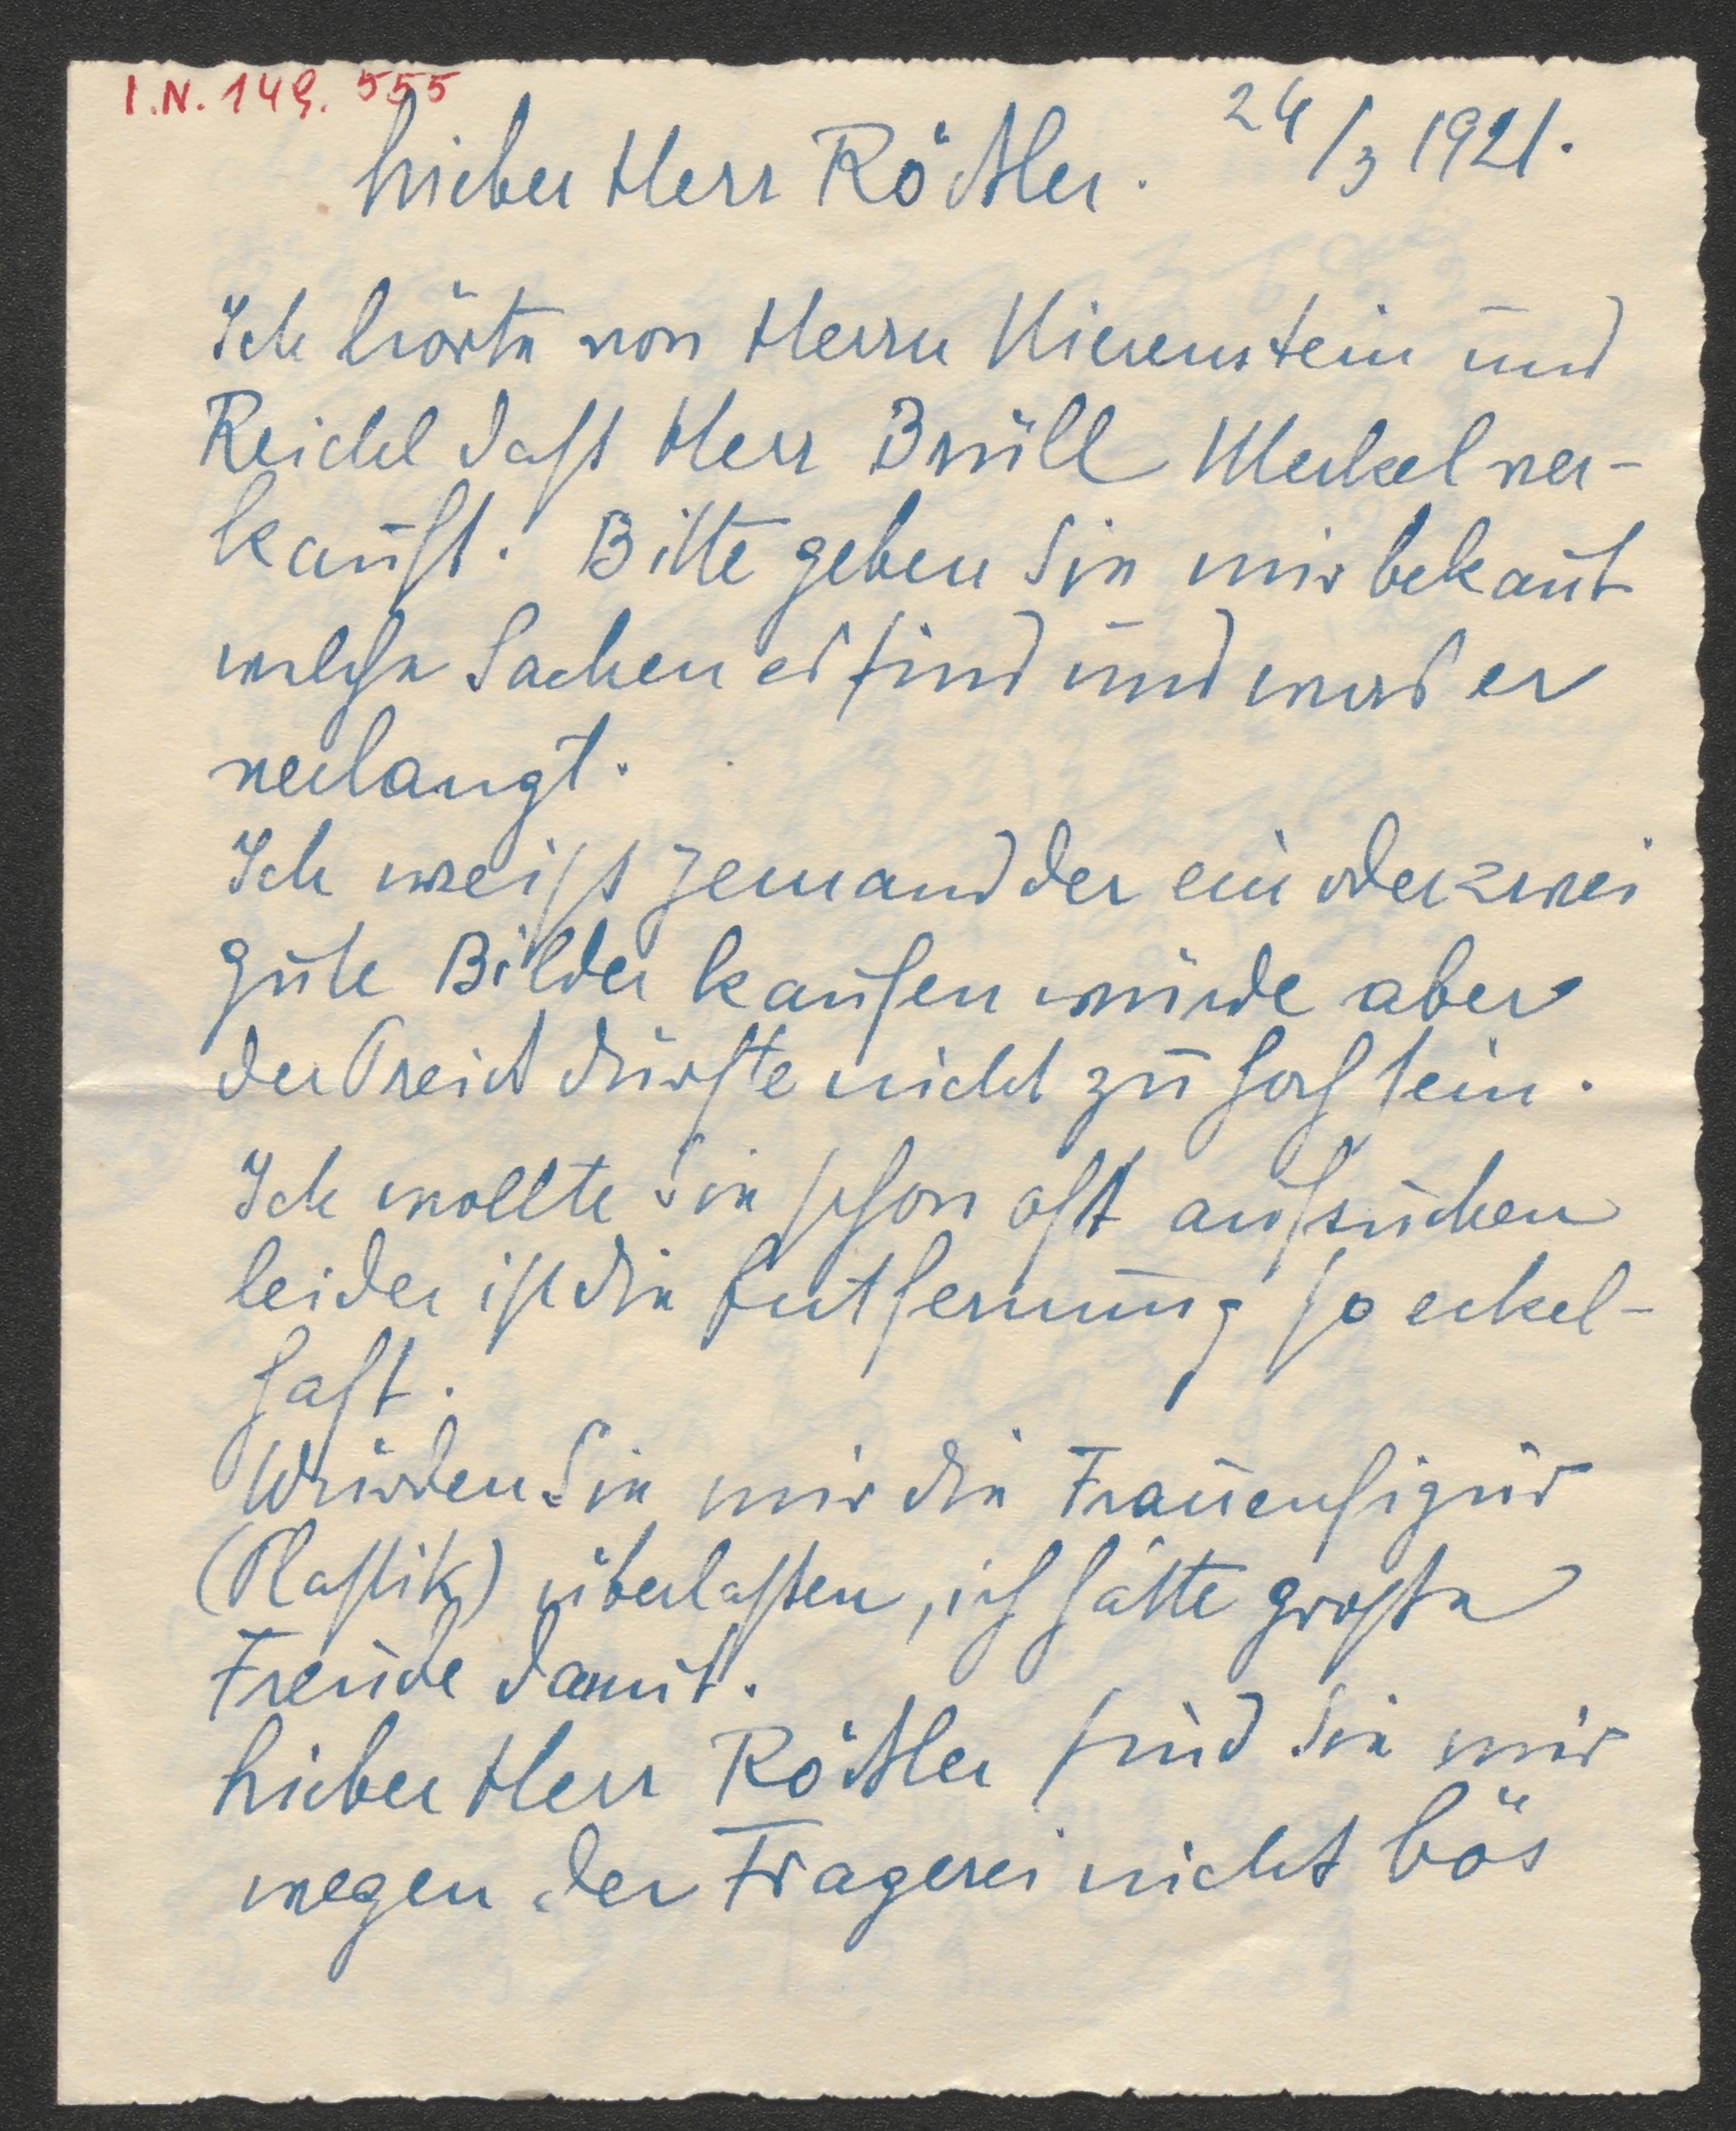 I.N. 149.555
24/3 1921.
Lieber Herr Rössler.
Ich hörte von Herrn Nirenstein und
Reichel dass Herr Brüll Merkel ver-
kauft. Bitte geben Sie mir bekañt
welche Sachen es sind und was er
verlangt.
Ich weiss jemand der ein oder zwei
gute Bilder kaufen würde aber
der Preis dürfte nicht zu hoch sein.
Ich wollte Sie schon oft aufsuchen
leider ist die Entfernung so eckel-
haft.
Würden Sie mir die Frauenfigur
(Plastik) überlassen, ich hätte grosse
Freude damit.
Lieber Herr Rössler sind Sie mir
wegen der Fragerei nicht bös